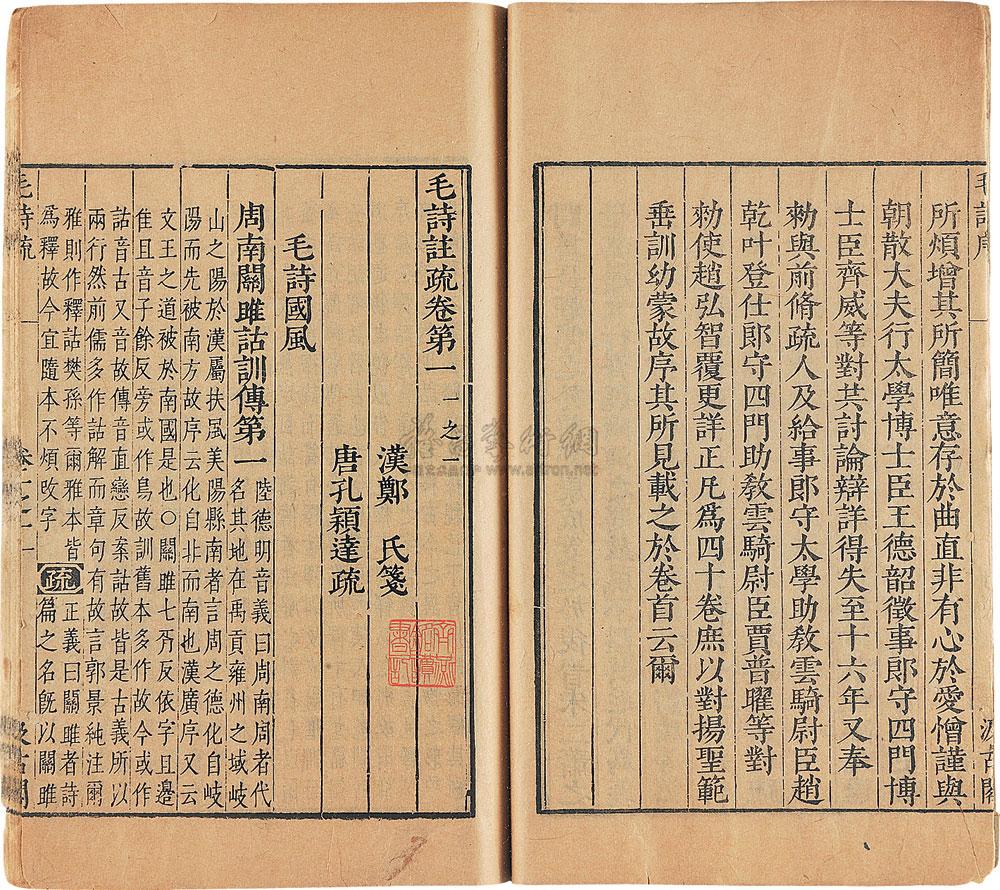 毛詩序
所煩增其所簡唯意存於曲直非有心於愛憎謹與
朝散大夫行太學博士臣王德韶徵事郎守四門博
士臣齊威等對共討論辯詳得失至十六年又奉
勑與前脩疏人及給事郎守太學助敎雲騎尉臣趙
乾叶登仕郎守四門助敎雲騎尉臣賈普曜等對
勑使趙弘智覆更詳正凡爲四十卷庶以對揚聖範
垂訓幼蒙故序其所見載之於卷首云爾
汲古閣
毛詩註疏卷第一 一之一
漢鄭 氏箋
唐孔穎達疏
毛詩國風
周南關雎詁訓傳第一
陸德明音義曰周南周者代
名其地在禹貢雍州之域岐
山之陽於漢屬扶風美陽縣南者言周之德化自岐
陽而先被南方故序云化自北而南也漢廣序又云
文王之道被於南國是也○關雎七胥反依字且邊
隹且音子餘反旁或作鳥故訓舊本多作故今或作
詁音古又音故傳音直戀反案詁故皆是古義所以
兩行然前儒多作詁解而章句有故言郭景純注爾
雅則作釋詁樊孫等爾雅本皆
爲釋故今宜隨本不煩攺字
疏
正義曰關雎者詩
篇之名旣以關雎
毛詩疏
卷一之一
一
汲古閣
www.artron.net